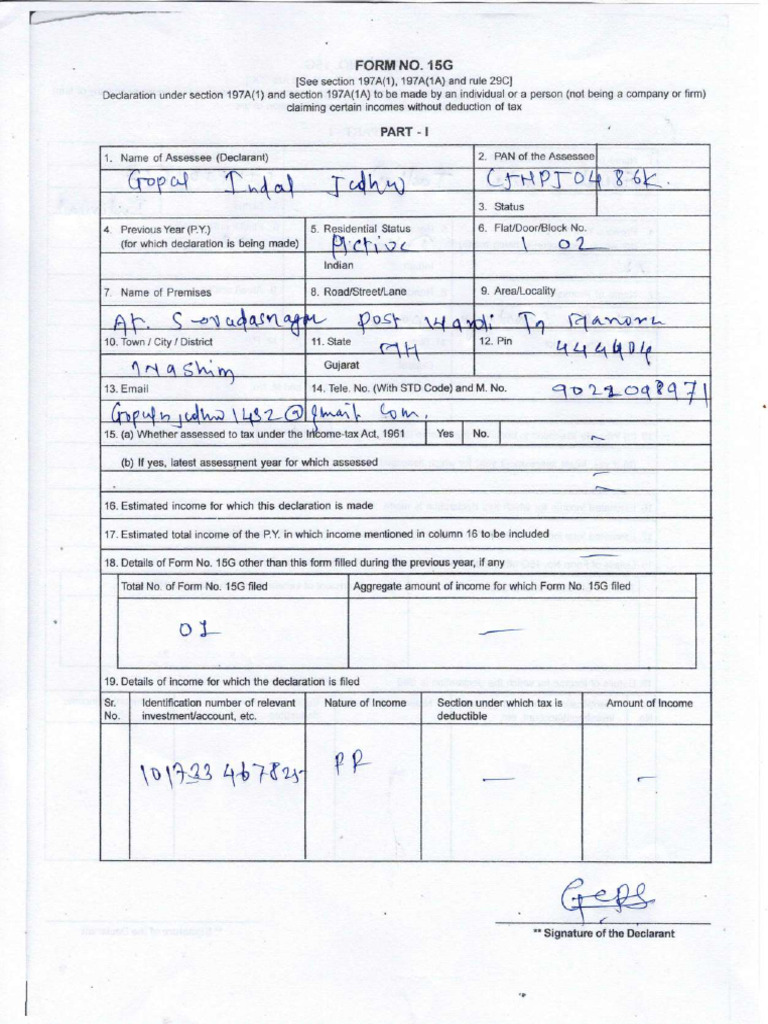 FORM NO. 15G
[See section 197A(1), 197A(1A) and rule 29C]
Declaration under section 197A(1) and section 197A(1A) to be made by an individual or a person (not being a company or firm)
claiming certain incomes without deduction of tax
PART - I
1. Name of Assessee (Declarant)
Gopal Indal Jcdhw
2. PAN of the Assessee
CJHPJ0486K.
3. Status
4. Previous Year (P.Y.)
(for which declaration is being made)
5. Residential Status
Active
Indian
6. Flat/Door/Block No.
1 02
7. Name of Premises
8. Road/Street/Lane
9. Area/Locality
At. Post Tq Manora
10. Town / City / District
Washim
11. State
MH
Gujarat
12. Pin
444404
13. Email
14. Tele. No. (With STD Code) and M. No.
9022098971
@gmail.com.
15. (a) Whether assessed to tax under the Income-tax Act, 1961
Yes
No.
(b) If yes, latest assessment year for which assessed
16. Estimated income for which this declaration is made
17. Estimated total income of the P.Y. in which income mentioned in column 16 to be included
18. Details of Form No. 15G other than this form filled during the previous year, if any
Total No. of Form No. 15G filed
Aggregate amount of income for which Form No. 15G filed
01
—
19. Details of income for which the declaration is filed
Sr. No.
Identification number of relevant investment/account, etc.
Nature of Income
Section under which tax is deductible
Amount of Income
101733467825
PF
—
–
** Signature of the Declarant